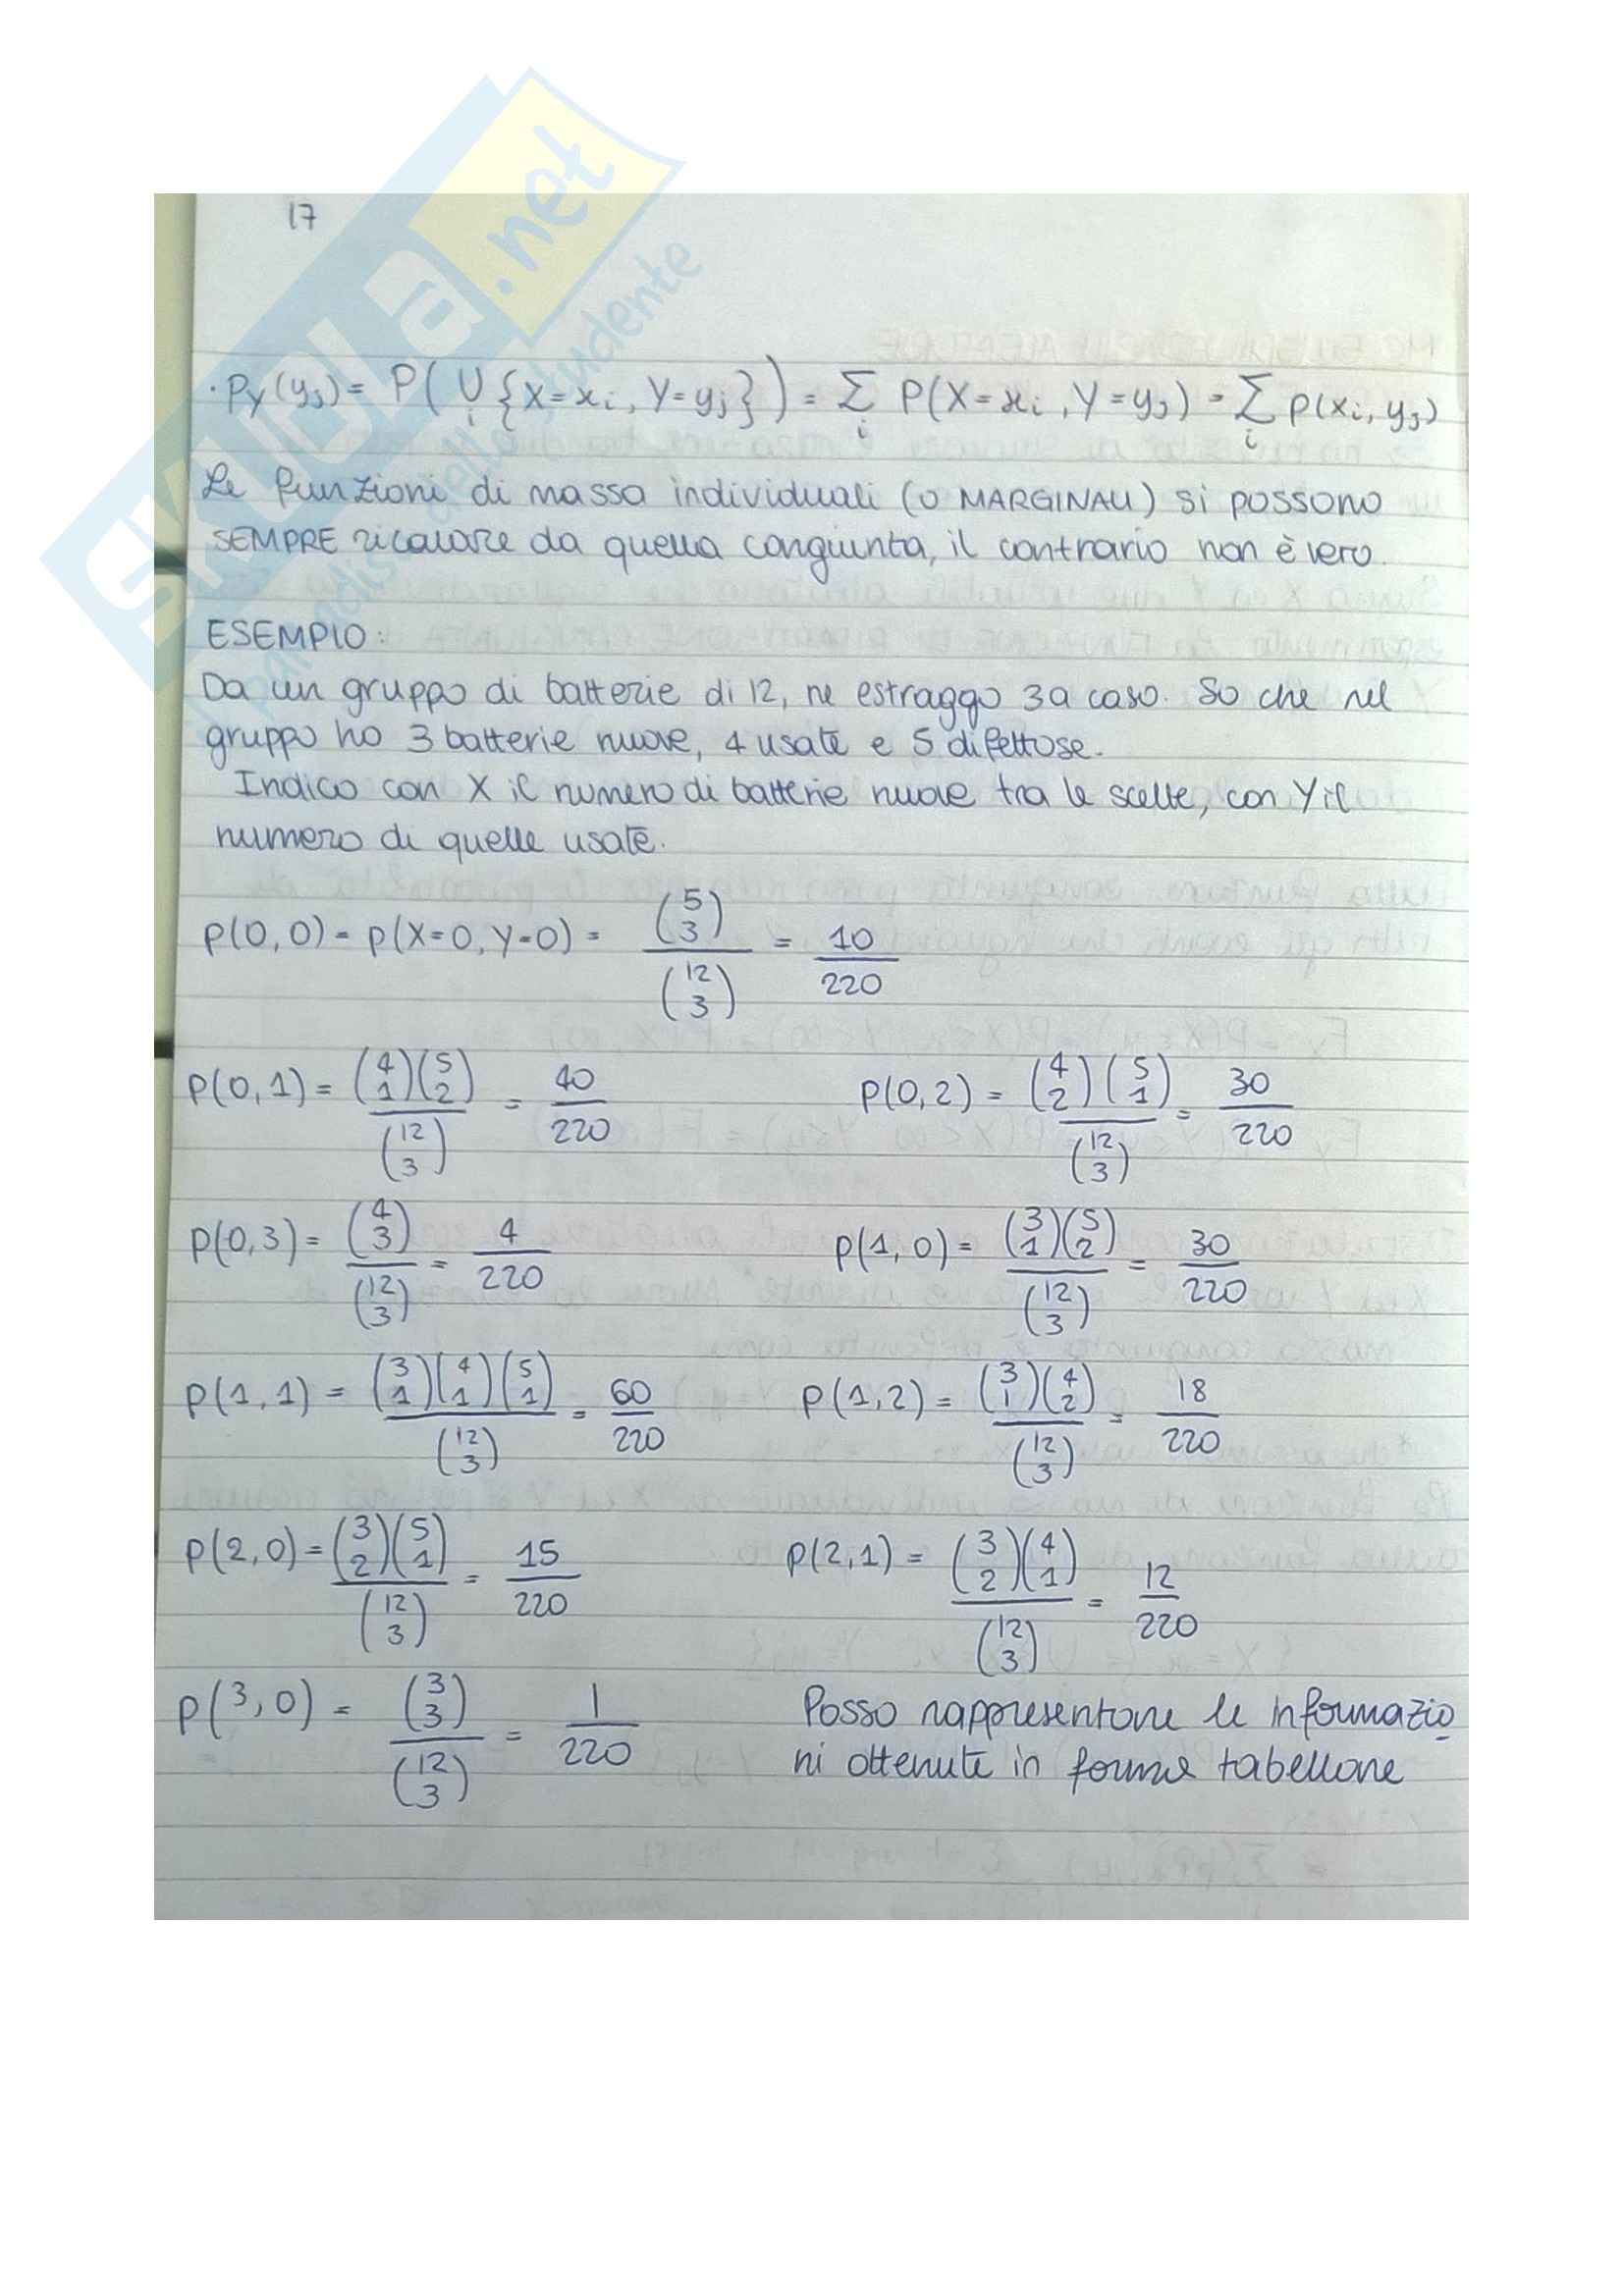 SKUOLa.net
17
· PY(yj) = P(∪i {X=xi, Y=yj}) = Σi P(X=xi, Y=yj) = Σi p(xi, yj)
Le funzioni di massa individuali (O MARGINALI) si possono
SEMPRE ricavare da quella congiunta, il contrario non è vero.
ESEMPIO:
Da un gruppo di batterie di 12, ne estraggo 3 a caso. So che nel
gruppo ho 3 batterie nuove, 4 usate e 5 difettose.
Indico con X il numero di batterie nuove tra le scelte, con Y il
numero di quelle usate.
p(0,0) = p(X=0, Y=0) = (5 3)/(12 3) = 10/220
p(0,1) = (4 1)(5 2)/(12 3) = 40/220 p(0,2) = (4 2)(5 1)/(12 3) = 30/220
p(0,3) = (4 3)/(12 3) = 4/220 p(1,0) = (3 1)(5 2)/(12 3) = 30/220
p(1,1) = (3 1)(4 1)(5 1)/(12 3) = 60/220 p(1,2) = (3 1)(4 2)/(12 3) = 18/220
p(2,0) = (3 2)(5 1)/(12 3) = 15/220 p(2,1) = (3 2)(4 1)/(12 3) = 12/220
p(3,0) = (3 3)/(12 3) = 1/220 Posso rappresentare le informazio
ni ottenute in forma tabellare